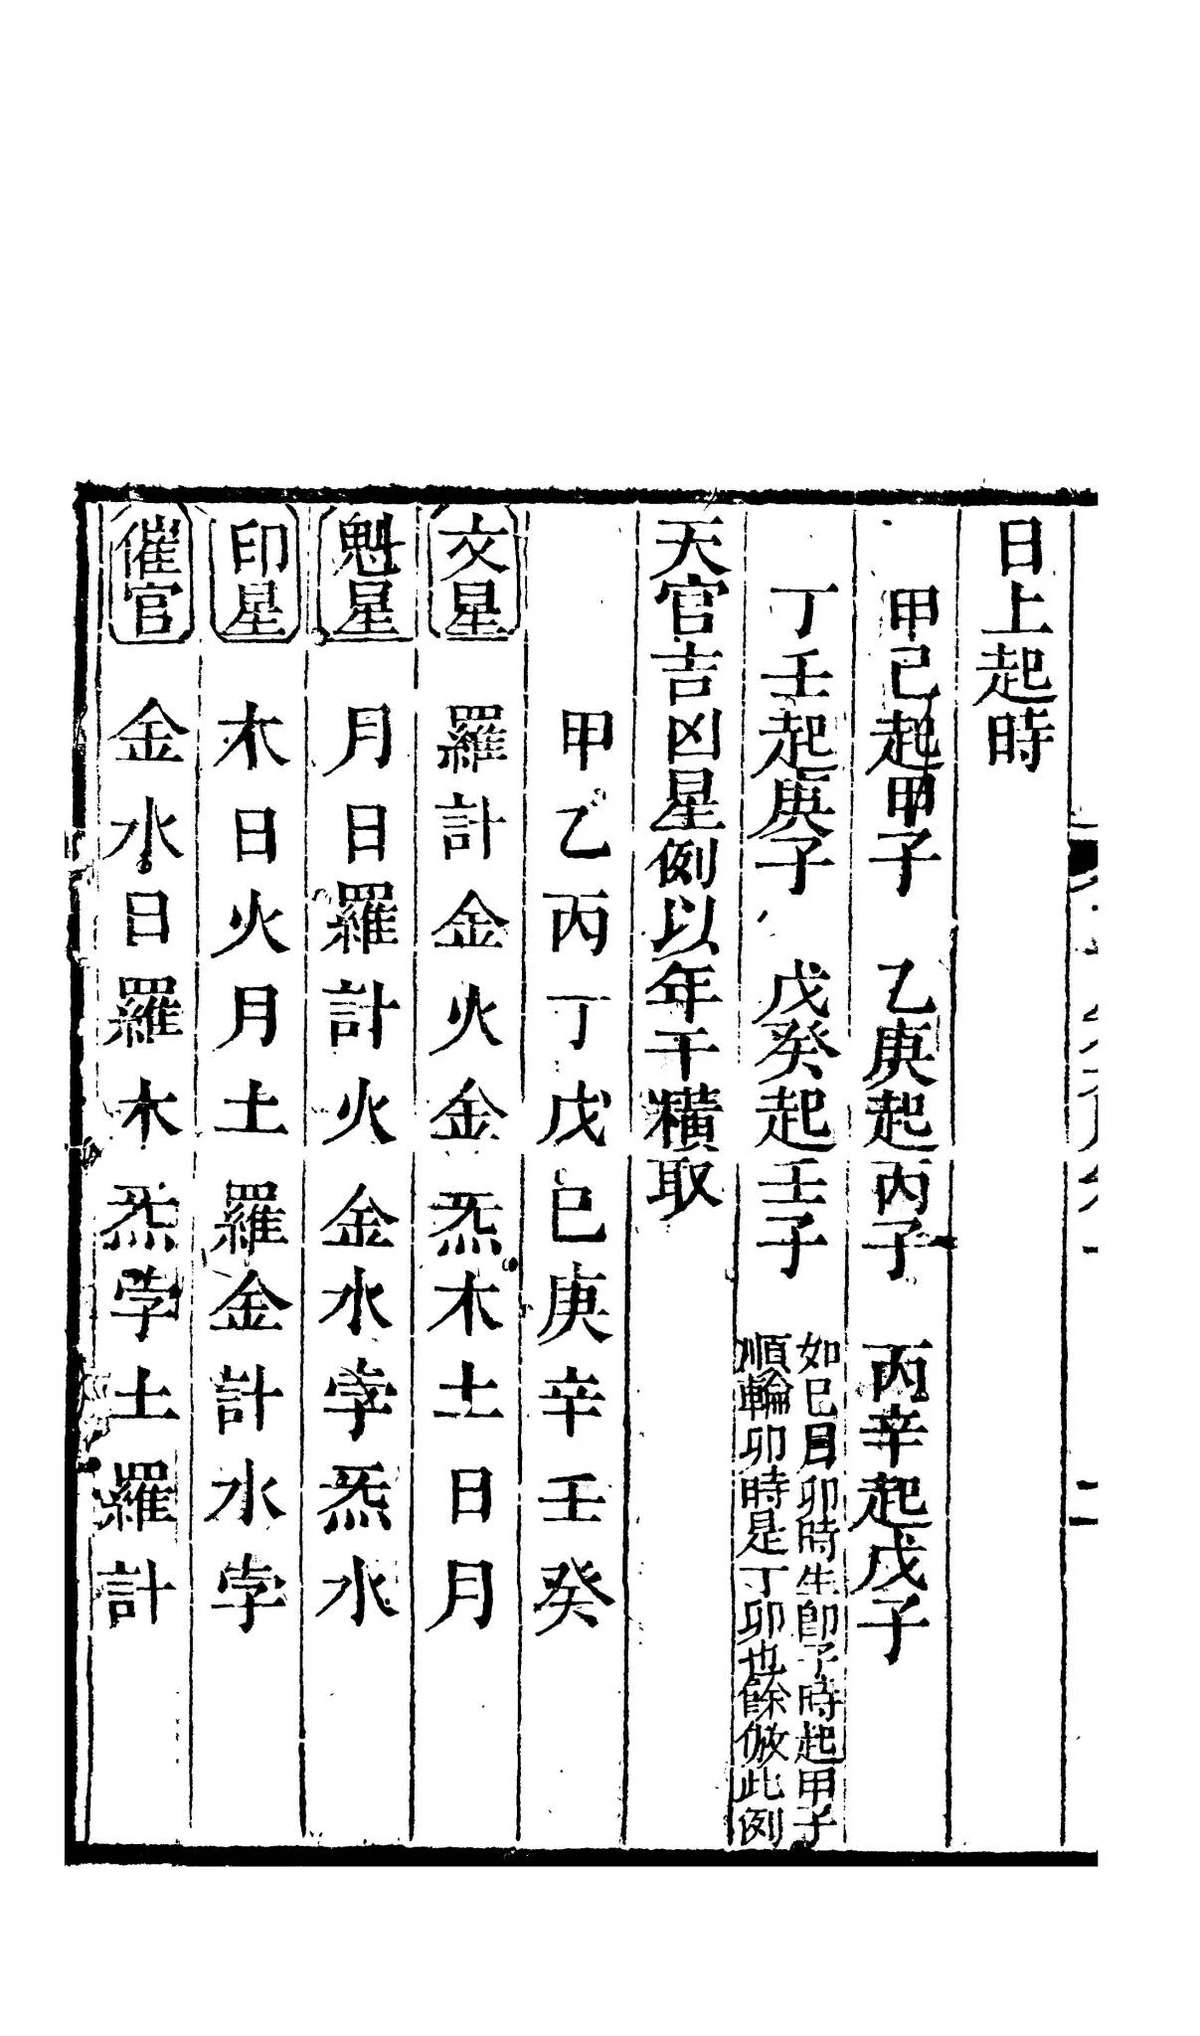 日上起時
甲己起甲子　乙庚起丙子　丙辛起戊子
丁壬起庚子　戊癸起壬子　如己日卯時生卽子時起甲子
順輪卯時是丁卯也餘倣此例
天官吉凶星例以年干橫取
甲乙丙丁戊己庚辛壬癸
文星　羅計金火金炁木土日月
魁星　月日羅計火金水孛炁水
印星　木日火月土羅金計水孛
催官　金水日羅木炁孛土羅計